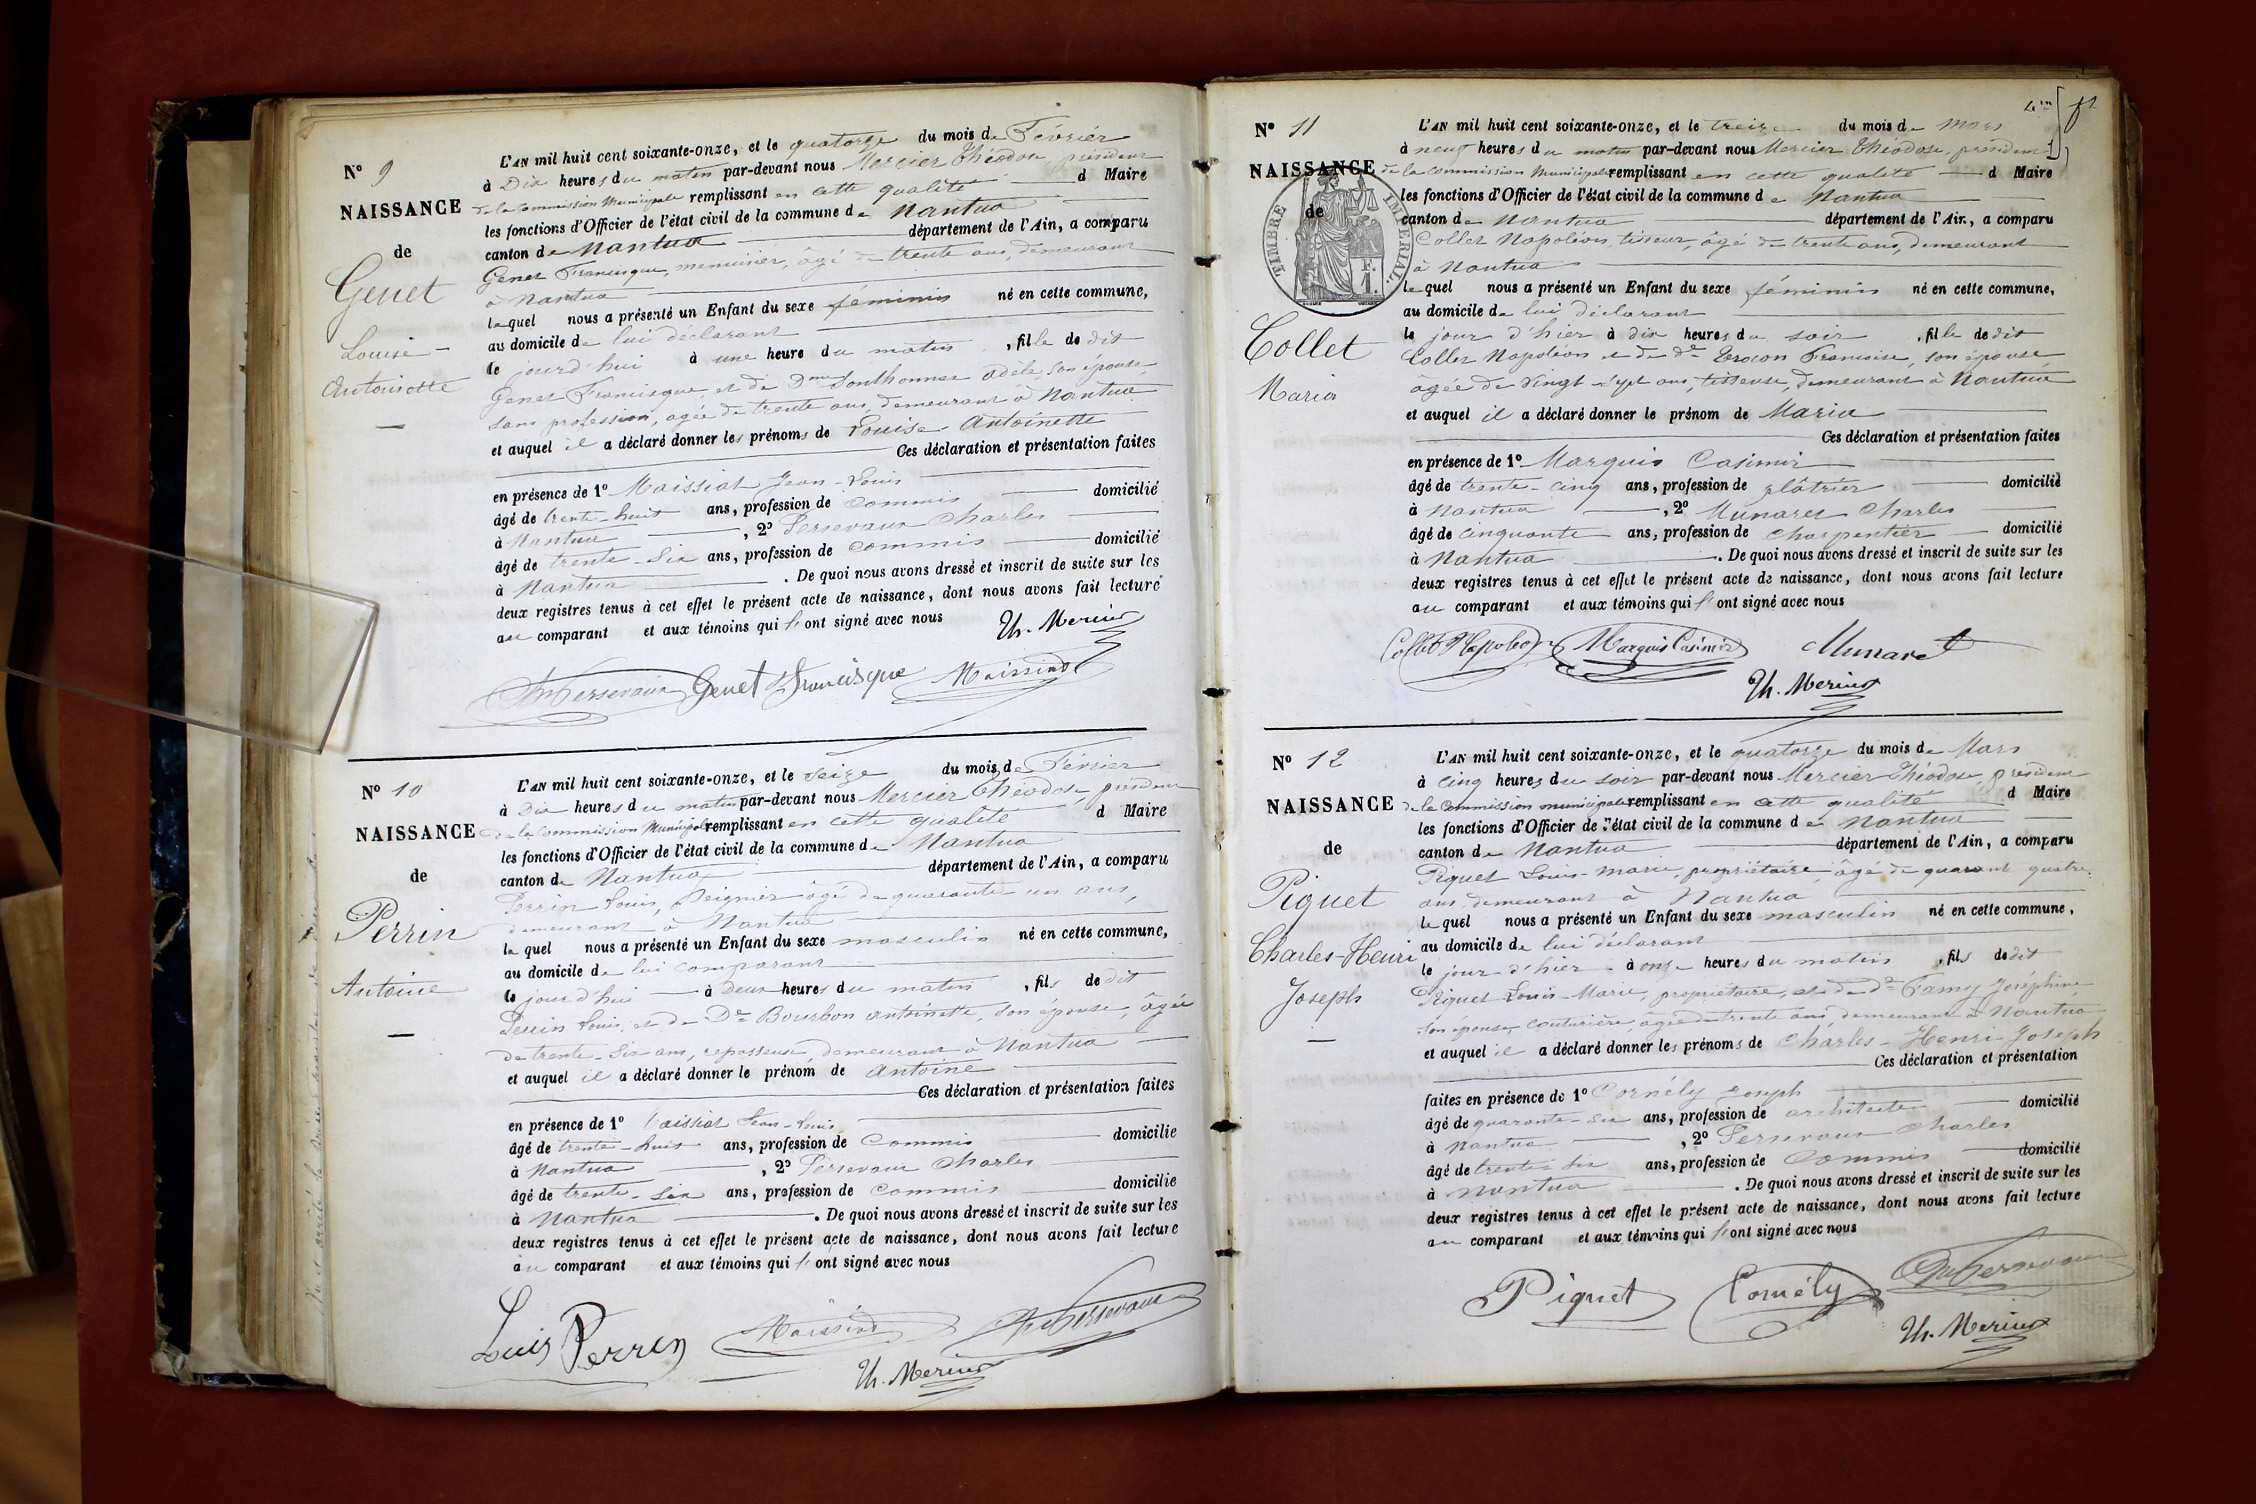 N° 9
NAISSANCE
de
Genet
Louise
Antoinette
L'AN mil huit cent soixante-onze, et le quatorze du mois de Février
à Dix heures du matin par-devant nous Mercier Théodose, président
de la Commission Municipale remplissant en cette qualité d Maire
les fonctions d'Officier de l'état civil de la commune de Nantua
canton de Nantua département de l'Ain, a comparu
Genet Francisque, menuisier, âgé de trente ans, demeurant
à Nantua
lequel nous a présenté un Enfant du sexe féminin né en cette commune,
au domicile de lui déclarant
le jourd'hui à une heure du matin, fille de dit
Genet Francisque, et de Dme Adèle, son épouse,
sans profession, agée de trente ans, demeurant à Nantua
et auquel il a déclaré donner les prénoms de Louise Antoinette
Ces déclaration et présentation faites
en présence de 1° Maissiat Jean-Louis
âgé de trente-huit ans, profession de commis domicilié
à Nantua, 2° Persevaux Charles
âgé de trente-six ans, profession de commis domicilié
à Nantua. De quoi nous avons dressé et inscrit de suite sur les
deux registres tenus à cet effet le présent acte de naissance, dont nous avons fait lecture
au comparant et aux témoins qui l'ont signé avec nous
Th. Mercier
Ch Persevaux Genet Francisque Maissiat
N° 10
NAISSANCE
de
Perrin
Antoine
L'AN mil huit cent soixante-onze, et le seize du mois de Février
à Dix heures du matin par-devant nous Mercier Théodose, président
de la Commission Municipale remplissant en cette qualité d Maire
les fonctions d'Officier de l'état civil de la commune de Nantua
canton de Nantua département de l'Ain, a comparu
Perrin Louis, Peignier âgé de quarante un ans,
demeurant à Nantua
lequel nous a présenté un Enfant du sexe masculin né en cette commune,
au domicile de lui comparant
le jourd'hui à deux heures du matin, fils de dit
Perrin Louis, et de De Bourbon Antoinette, son épouse, âgée
de trente-six ans, repasseuse, demeurant à Nantua
et auquel il a déclaré donner le prénom de Antoine
Ces déclaration et présentation faites
en présence de 1° Maissiat Jean-Louis
âgé de trente-huit ans, profession de Commis domicilié
à Nantua, 2° Persevaux Charles
âgé de trente-six ans, profession de commis domicilié
à Nantua. De quoi nous avons dressé et inscrit de suite sur les
deux registres tenus à cet effet le présent acte de naissance, dont nous avons fait lecture
au comparant et aux témoins qui l'ont signé avec nous
Louis Perrin Maissiat Ch Persevaux
Th. Mercier
N° 11
NAISSANCE
de
TIMBRE IMPÉRIAL
F.
1.
Collet
Maria
L'AN mil huit cent soixante-onze, et le treize du mois de Mars
à neuf heures du matin par-devant nous Mercier Théodose, président
de la Commission Municipale remplissant en cette qualité d Maire
les fonctions d'Officier de l'état civil de la commune de Nantua
canton de Nantua département de l'Ain, a comparu
Collet Napoléon, tisseur, âgé de trente ans, demeurant
à Nantua
lequel nous a présenté un Enfant du sexe féminin né en cette commune,
au domicile de lui déclarant
le jour d'hier à dix heures du soir, fille de dit
Collet Napoléon et de De Françoise, son épouse
agée de vingt-sept ans, tisseuse, demeurant à Nantua
et auquel il a déclaré donner le prénom de Maria
Ces déclaration et présentation faites
en présence de 1° Marquis Casimir
âgé de trente-cinq ans, profession de plâtrier domicilié
à Nantua, 2° Munaret Charles
âgé de cinquante ans, profession de charpentier domicilié
à Nantua. De quoi nous avons dressé et inscrit de suite sur les
deux registres tenus à cet effet le présent acte de naissance, dont nous avons fait lecture
au comparant et aux témoins qui l'ont signé avec nous
Collet Napoléon Marquis Casimir Munaret
Th. Mercier
N° 12
NAISSANCE
de
Piquet
Charles-Henri
Joseph
L'AN mil huit cent soixante-onze, et le quatorze du mois de Mars
à cinq heures du soir par-devant nous Mercier Théodose, président
de la Commission municipale remplissant en cette qualité d Maire
les fonctions d'Officier de l'état civil de la commune de Nantua
canton de Nantua département de l'Ain, a comparu
Piquet Louis-Marie, propriétaire, âgé de quarante quatre
ans, demeurant à Nantua
lequel nous a présenté un Enfant du sexe masculin né en cette commune,
au domicile de lui déclarant
le jour d'hier à onze heures du matin, fils de dit
Piquet Louis-Marie, propriétaire, et de De Famy Joséphine
son épouse, couturière, agée de trente ans, demeurant à Nantua
et auquel il a déclaré donner les prénoms de Charles-Henri-Joseph
Ces déclaration et présentation
faites en présence de 1° Cornély Joseph
âgé de quarante-six ans, profession de architecte domicilié
à Nantua, 2° Persevaux Charles
âgé de trente-six ans, profession de Commis domicilié
à Nantua. De quoi nous avons dressé et inscrit de suite sur les
deux registres tenus à cet effet le présent acte de naissance, dont nous avons fait lecture
au comparant et aux témoins qui l'ont signé avec nous
Piquet Cornély Ch Persevaux
Th. Mercier